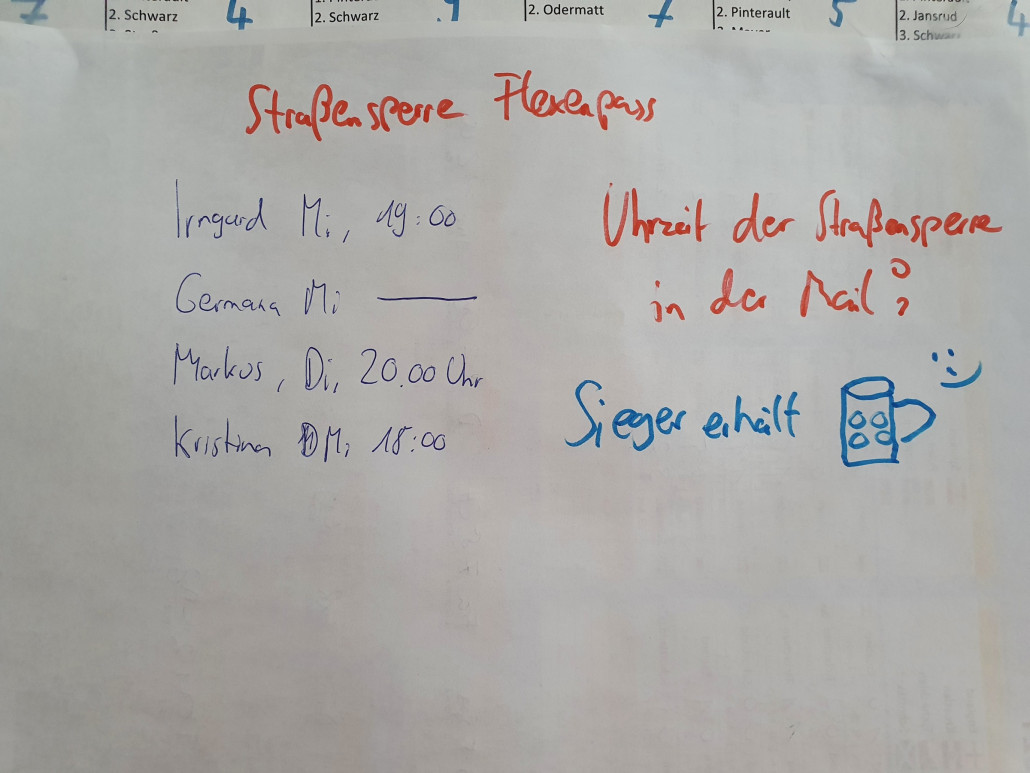 2. Schwarz 4
2. Schwarz
2. Odermatt
2. Pinterault 5
2. Jansrud 4
3. Schwarz
Straßensperre Flexenpass
Irmgard Mi, 19:00
Germana Mi —
Markus, Di, 20.00 Uhr
Kristina Mi 18:00
Uhrzeit der Straßensperre
in der Mail?
Sieger erhält
:)